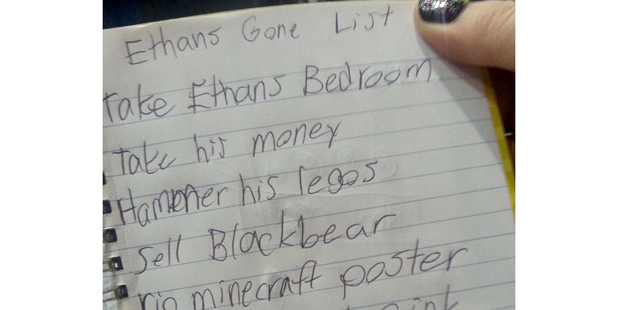 Ethans Gone List
Take Ethans Bedroom
Take his money
Hammer his legos
Sell Blackbear
rip minecraft poster